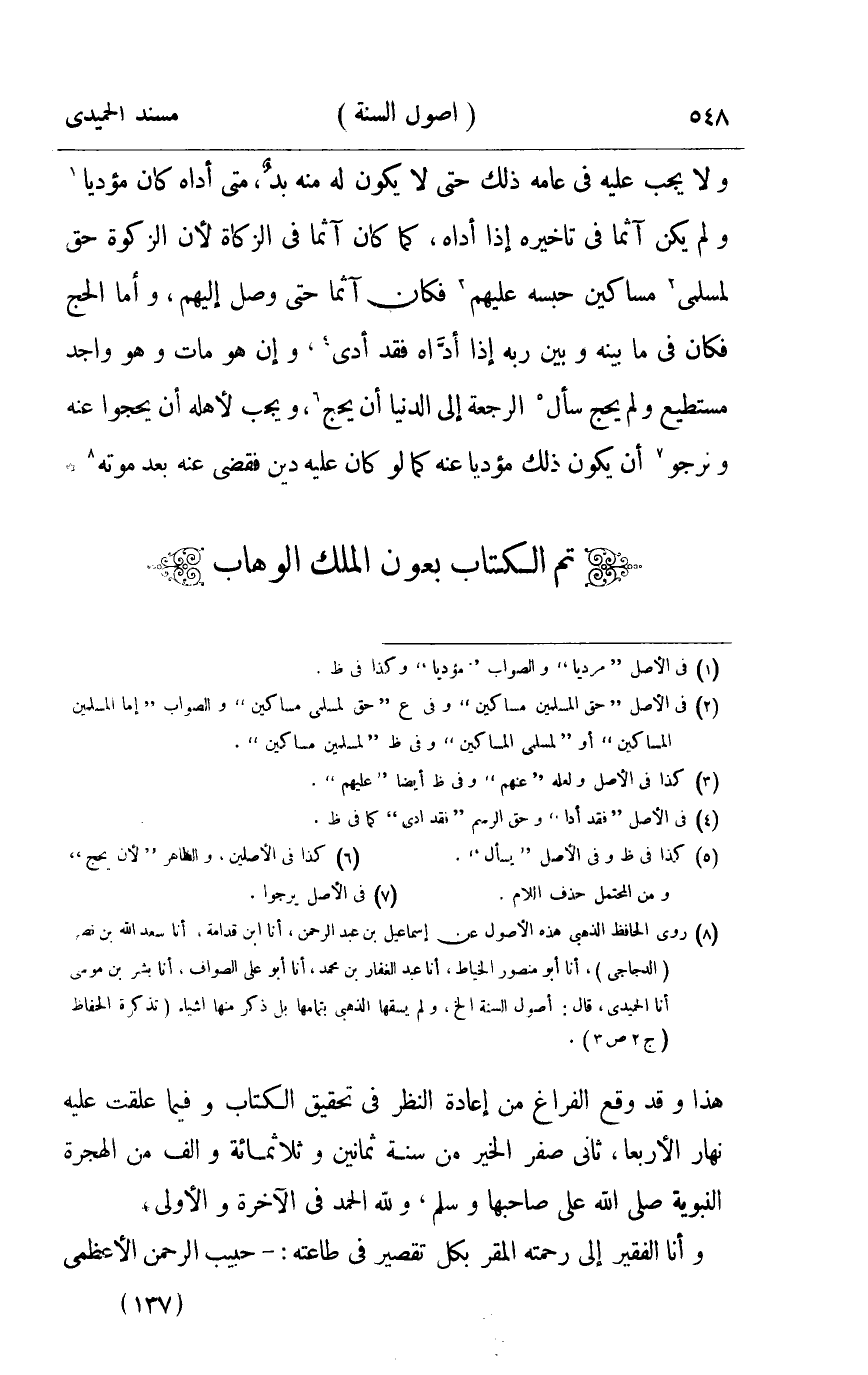 ٥٤٨ ( اصول السنة ) مسند الحميدى
و لا يجب عليه فى عامه ذلك حتى لا يكون له منه بدٌ، متى أداه كان مؤديا ١
و لم يكن آثما فى تاخيره إذا أداه، كما كان آثما فى الزكاة لأن الزكوة حق
لمسلمى ٢ مساكين حبسه عليهم ٣ فكان آثما حتى وصل إليهم، و أما الحج
فكان فى ما بينه و بين ربه إذا أدَّاه فقد أدى ٤، و إن هو مات و هو واجد
مستطيع و لم يحج سأل ٥ الرجعة إلى الدنيا أن يحج ٦، و يجب لأهله أن يحجوا عنه
و نرجو ٧ أن يكون ذلك مؤديا عنه كما لو كان عليه دين فقضى عنه بعد موته ٨
تم الكتاب بعون الملك الوهاب
(١) فى الأصل ”مرديا“ و الصواب ”مؤديا“ وكذا فى ظ .
(٢) فى الأصل ”حق المسلمين مساكين“ و فى ع ”حق لمسلمى مساكين“ و الصواب ”إما المسلمين
المساكين“ أو ”لمسلمى المساكين“ و فى ظ ”لمسلمين مساكين“ .
(٣) كذا فى الأصل و لعله ”عنهم“ و فى ظ أيضا ”عليهم“ .
(٤) فى الأصل ”فقد أدا“ و حق الرسم ”فقد ادى“ كما فى ظ .
(٥) كذا فى ظ و فى الأصل ”يسأل“ . (٦) كذا فى الأصلين، و الظاهر ”لأن يحج“
و من المحتمل حذف اللام . (٧) فى الأصل يرجوا .
(٨) روى الحافظ الذهبى هذه الأصول عن إسماعيل بن عبد الرحمن، أنا ابن قدامة، أنا سعد الله بن نصر
(الدجاجى)، أنا أبو منصور الخياط، أنا عبد الغفار بن محمد، أنا أبو على الصواف، أنا بشر بن موسى
أنا الحميدى، قال: أصول السنة الخ، و لم يسقها الذهبى بتمامها بل ذكر منها اشياء (تذكرة الحفاظ
(ج ٢ ص ٣) .
هذا و قد وقع الفراغ من إعادة النظر فى تحقيق الكتاب و فيما علقت عليه
نهار الأربعا، ثانى صفر الخير من سنة ثمانين و ثلاثمائة و الف من الهجرة
النبوية صلى الله على صاحبها و سلم، و لله الحمد فى الآخرة و الأولى،
و أنا الفقير إلى رحمته المقر بكل تقصير فى طاعته : - حبيب الرحمن الأعظمى
(١٣٧)